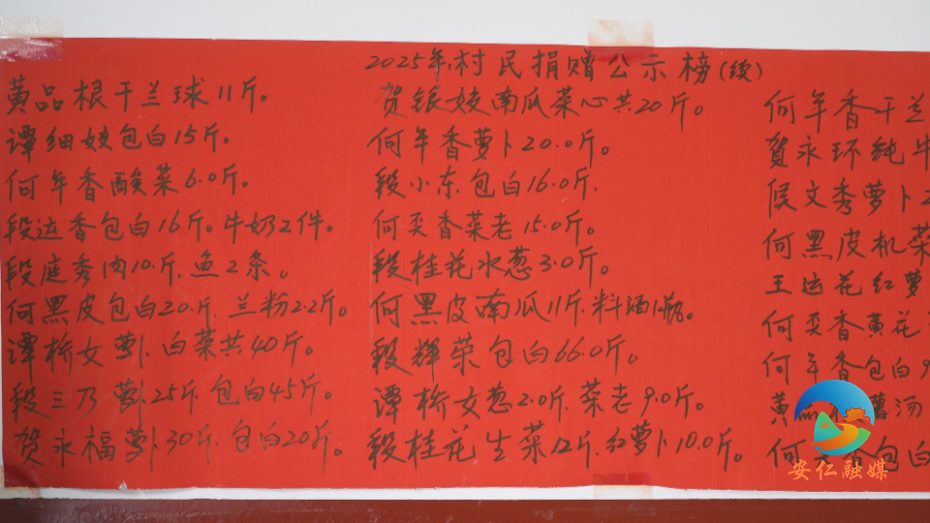 2025年村民捐赠公示榜(续)
黄品根干兰球11斤。
谭细姣包白15斤。
何年香酸菜6.0斤。
段运香包白16斤。牛奶2件。
段庭秀肉10斤.鱼2条。
何黑皮包白20斤.兰粉2.2斤。
谭桥女萝卜.白菜共40斤。
段三乃萝卜25斤.包白45斤。
贺永福萝卜30斤.包白20斤.
贺银姣南瓜菜心共20斤。
何年香萝卜20.0斤。
段小东包白16.0斤.
何香菜老15.0斤。
段桂花水葱3.0斤。
何黑皮南瓜11斤.料酒1瓶。
段辉荣包白66.0斤。
谭桥女葱2.0斤.菜老9.0斤。
段桂花生菜12斤.红萝卜10.0斤。
何年香干兰
贺永环纯牛
候文秀萝卜2
何黑皮机菜
王运花红萝
何香黄花
何年香包白9
黄薯汤
何香包白
安仁融媒